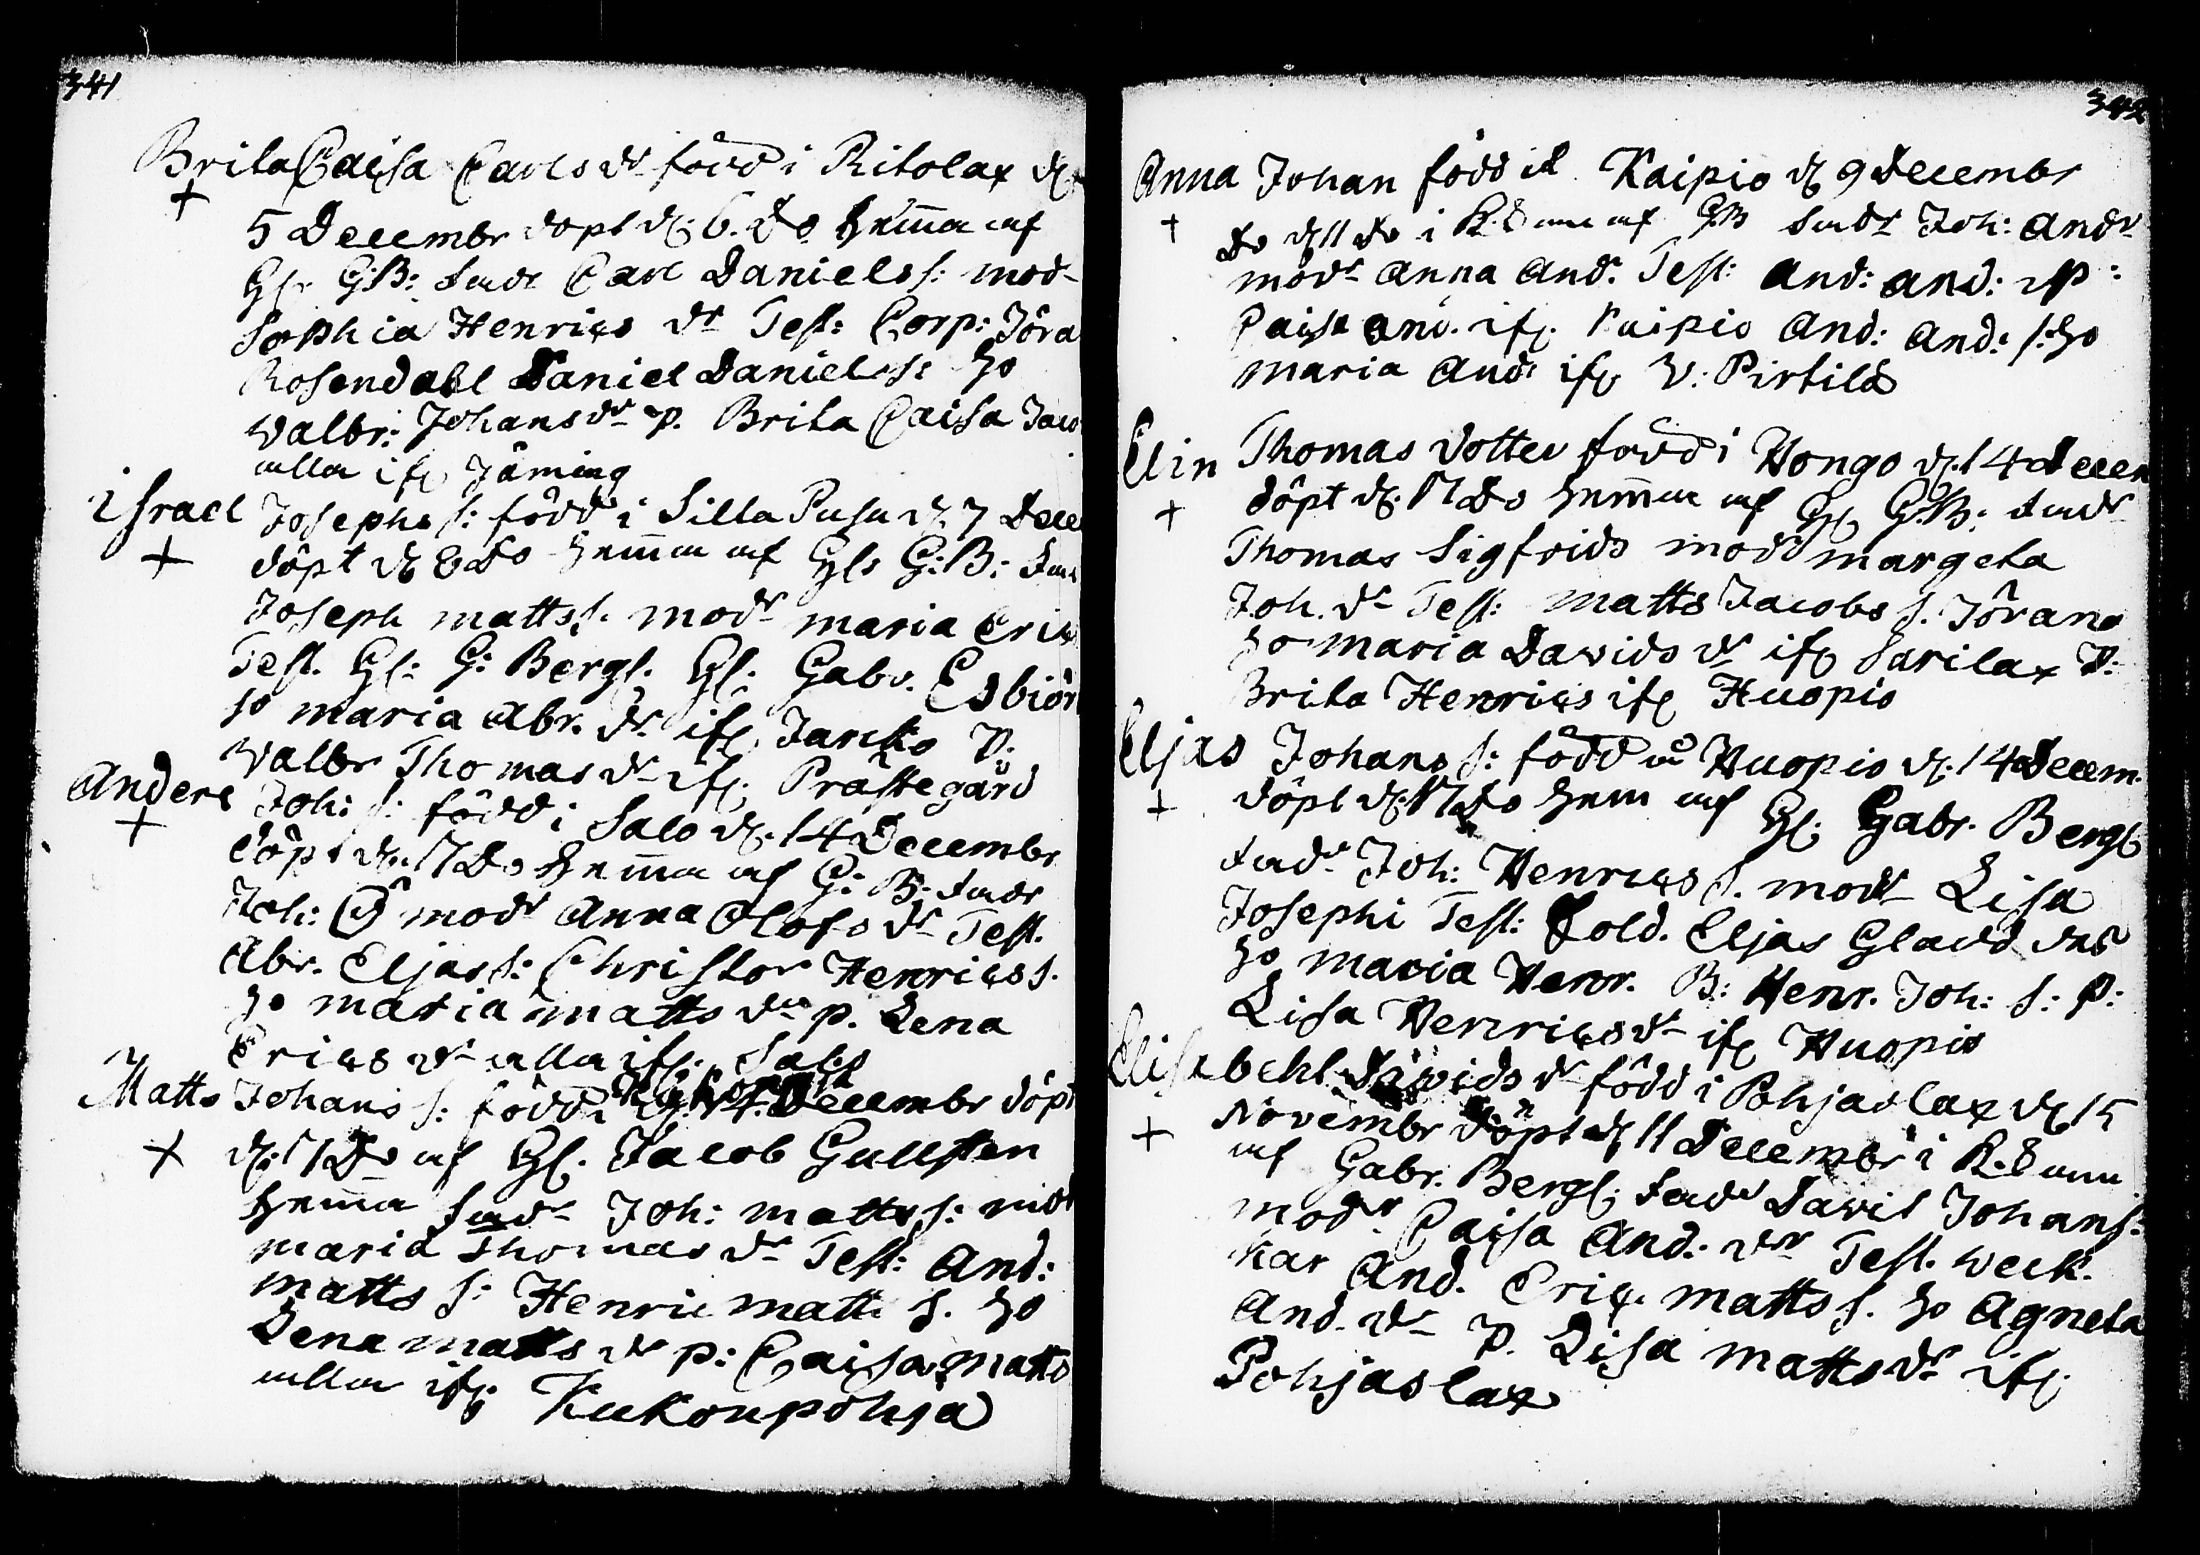 341
Brita Caisa Carls dr född i Ritolax d
5 Decembr döpt d. 6. Do hemma af
Hl. G:B: fadr Carl Daniels s: mod
Sophia Henrics dr Test: Corp: Jöra
Rosendahl Daniel Daniels s: ho
Walbr: Johans dr p. Brita Caisa Jaco
alla if Jäming
Israel Josephs s: född i Silla Pusu d. 7 Dece
döpt d 8 Do hemma af Hl G:B: fad
Joseph matts s. modr maria Eric
Test. Hl: G: Bergs. Hl: Gabr. Esbiör
ho maria Abr. dr if Jancko P:
Walbr Thomas dr if Prästegård
Anders Joh: s: född i Salo d. 14 Decembr
döpt d. 17 Do hemma af G: B: fadr
Joh: modr Anna Olofs dr Test.
Abr. Eljas s: Christer Henrics s.
ho maria matts dr p. Lena
Erics dr alla if Salo
Matts Johans s: född i d 14 Decembr döpt
d. 17 Do af Hl. Jacob Gullsten
hemma fadr Joh: matts s: mod
maria Thomas dr Test: And:
matts s: Henric matts s. ho
Lena matts dr p: Caisa matts
alla if Kukonpohja
342
Anna Johan född Kaipio d 9 Decembr
do d 11 do i K. af G:B fadr Joh: Andr
modr Anna And. Test: And: And: P:
Caisa And. if Kaipio And: And: s: ho
maria And: if V: Pirtilä
Elin Thomas dotter född i Hongo d. 14 Decem
döpt d. 17 Do hemma af Hl G:B: fadr
Thomas Sigfrids modr margeta
Joh. dr Test: Matts Jacobs s. Jörans
ho maria Dawids dr if Sarilax P:
Brita Henrics if Huopio
Eljas Johans s: född Huopio d. 14 Decem.
döpt d. 17 Do hem af Hl. Gabr. Bergs
fadr Joh: Henrics s. modr Lisa
Josephi Test: Sold. Eljas Gladd
ho maria Henr. B: Henr. Joh: s: P:
Lisa Henrics dr if Huopio
Elisabeht Dawids dr född i Pohjaslax d 15
Novembr döpt d 11 Decembr i K.
af Gabr. Bergs. fadr Dawid Johans:
modr Caisa And: dr Test. week.
kar And. Eric. matts s. ho Agneta
And. dr P. Lisa matts dr if
Pohjaslax